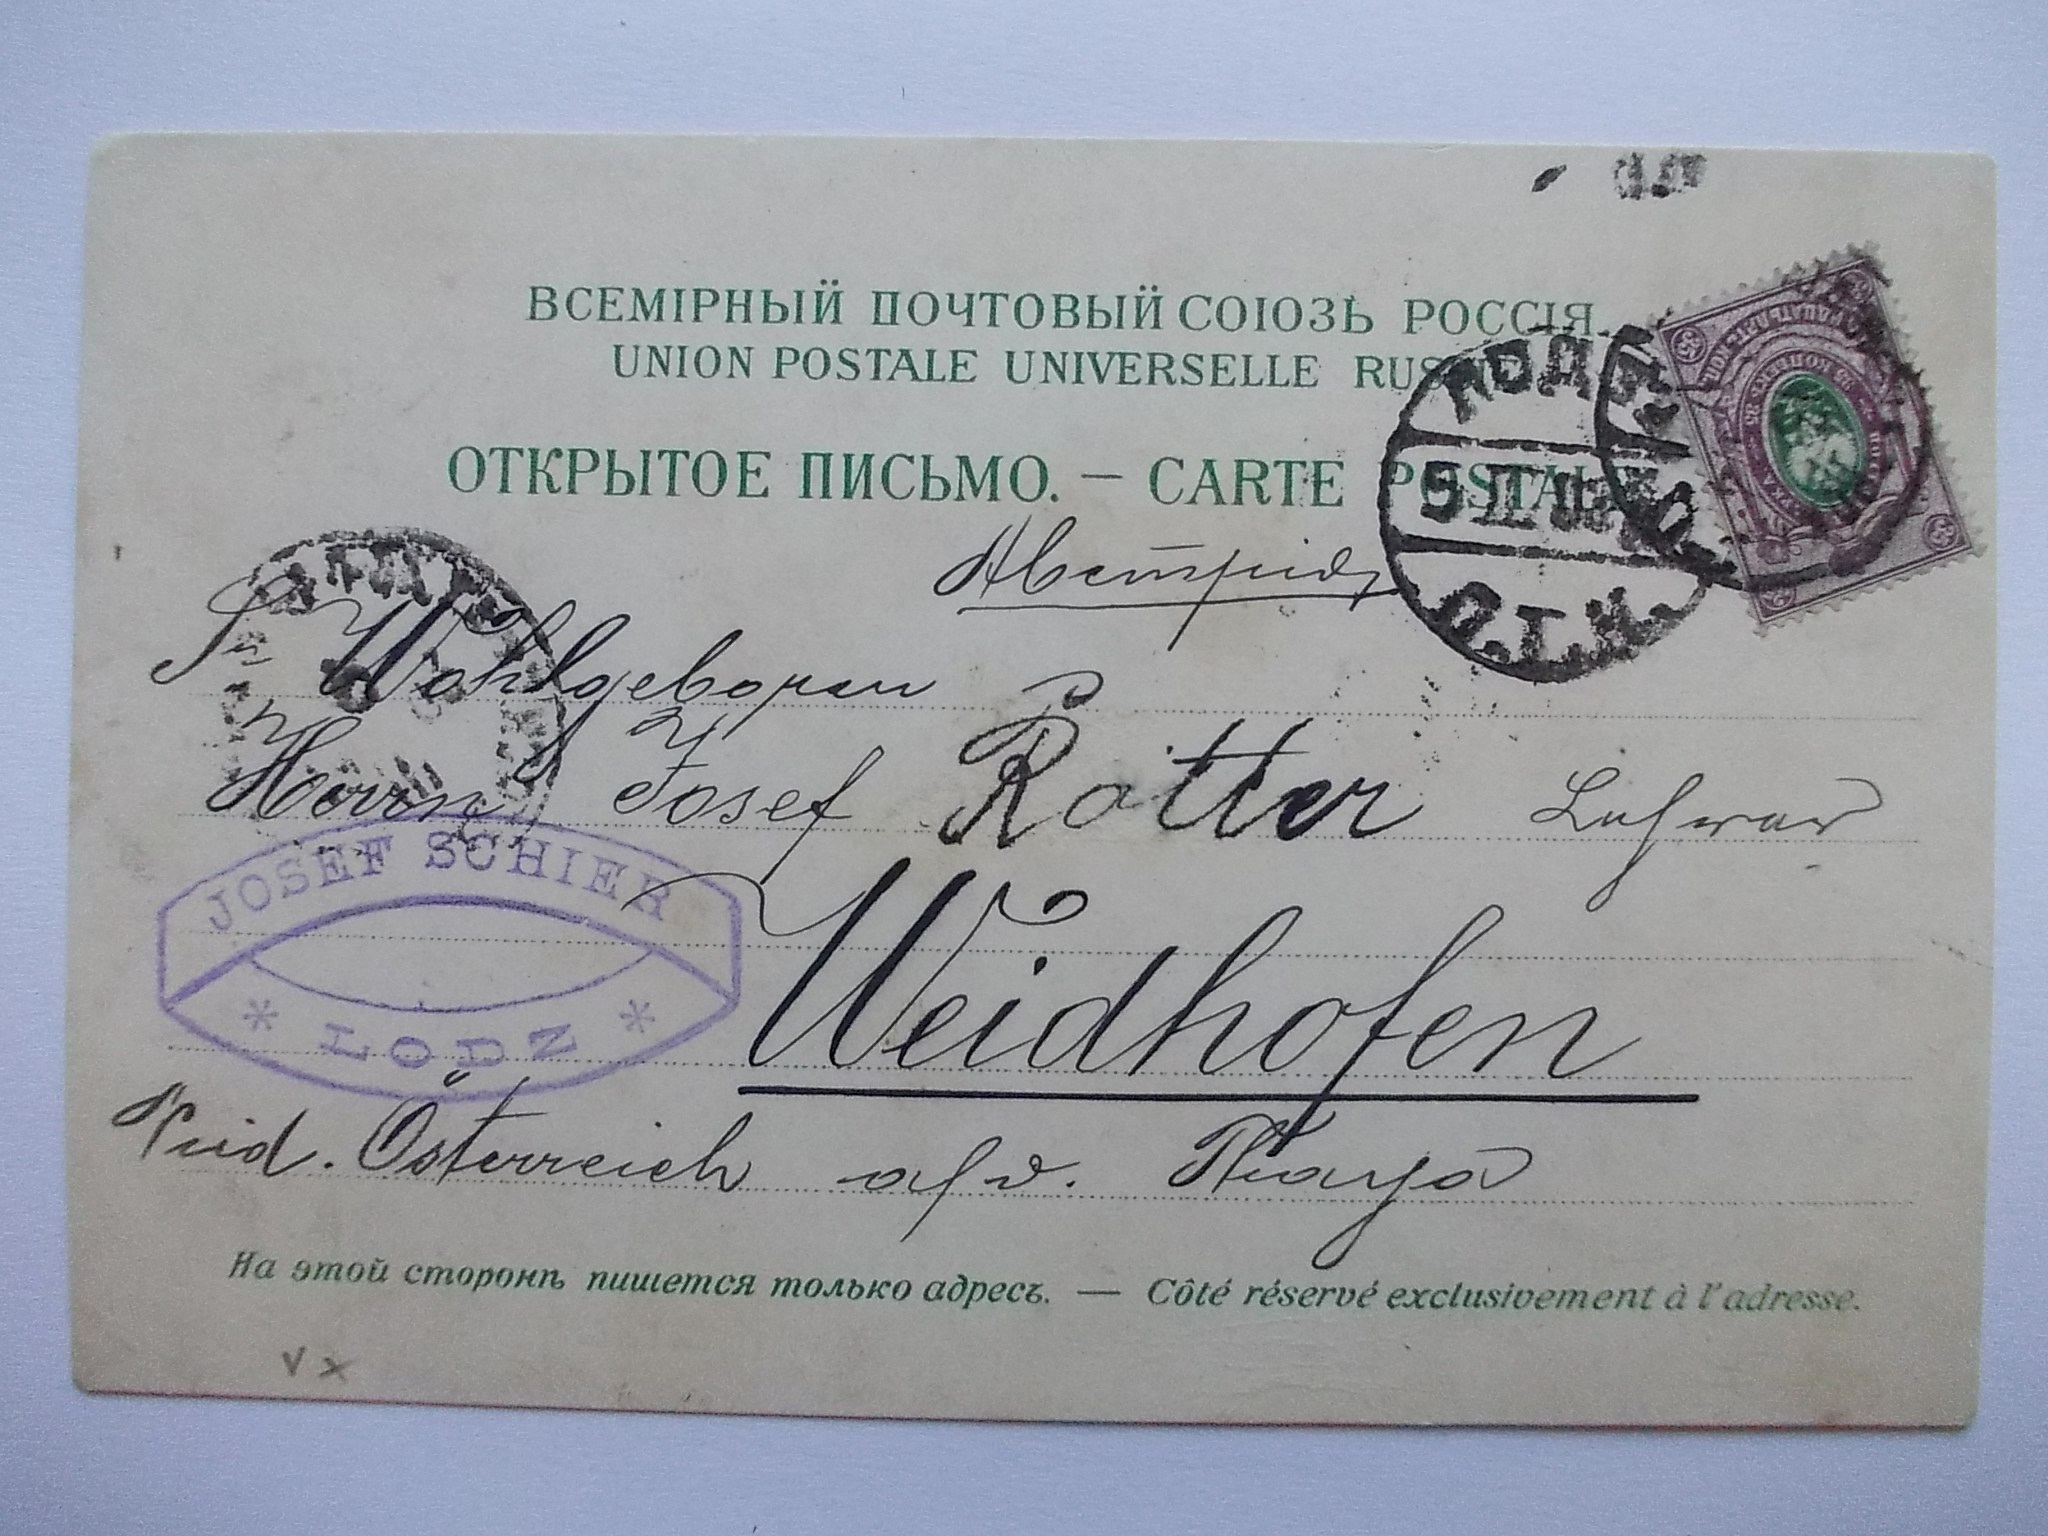 ВСЕМІРНЫЙ ПОЧТОВЫЙ СОЮЗЪ РОССІЯ.
UNION POSTALE UNIVERSELLE RUSSIE.
ОТКРЫТОЕ ПИСЬМО. — CARTE POSTALE
35 35
ЛОДЗЬ
9 II 0
П.Т.К.
Австрія
Sr Wohlgeboren
Herrn Josef Rotter Lehrer
JOSEF SCHIER
* LODZ *
Weidhofen
Nied. Österreich a/d. Thaya
На этой сторонѣ пишется только адресъ. — Côté réservé exclusivement à l'adresse.